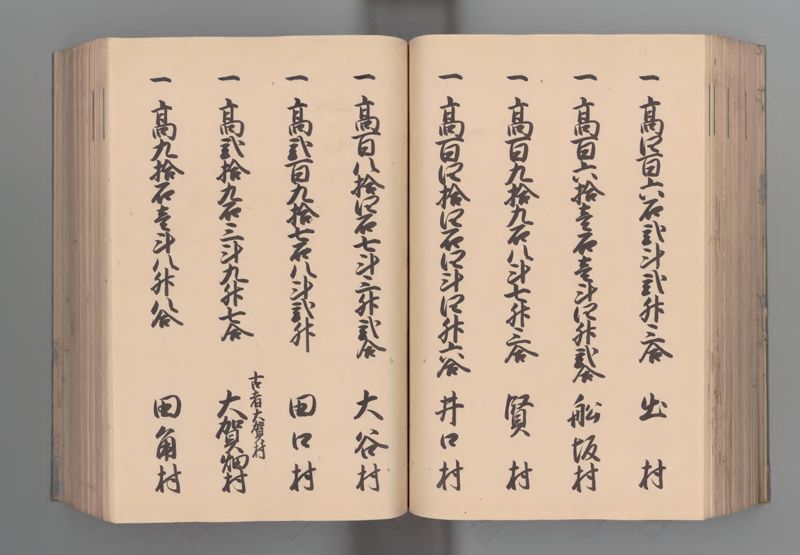 一 高四百六石弐斗弐升三合 出村
一 高百六拾壱石壱斗四升弐合 船坂村
一 高百九拾九石八斗七升三合 賢村
一 高百四拾四石四斗四升六合 井口村
一 高百八拾四石七斗三升弐合 大谷村
一 高弐百九拾七石八斗弐升 田口村
古者大賀村
一 高弐拾九石三斗九升七合 大賀畑村
一 高九拾石壱斗八升八合 田角村